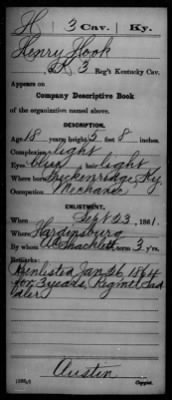 H | 3 Cav. | Ky.
Henry Hook
3 Reg't Kentucky Cav.
Appears on
Company Descriptive Book
of the organization named above.
DESCRIPTION.
Age 18 years; height 5 feet 8 inches.
Complexion light
Eyes blue; hair light
Where born Breckenridge, Ky.
Occupation Mechanic
ENLISTMENT.
When Sept 23, 1861.
Where Hardinsburg
By whom Shacklett; term 3 y'rs.
Remarks:
Reenlisted Jan 26 1864
for 3 years, Regimel Sad
dler
Austin
Copyist.